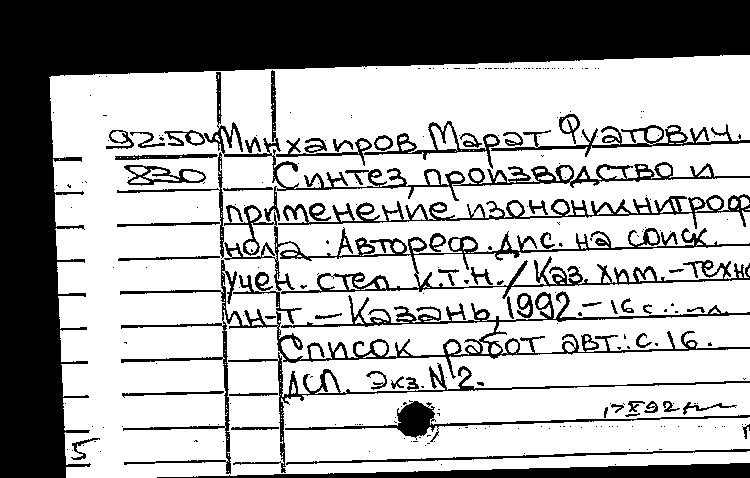 92:50М Минхаиров, Марат Фуатович.
830 Синтез, производство и
применение изононилнитроф
нола : Автореф. дис. на соиск.
учен. степ. к.т.н. / Каз. хим.-техно
ин-т. – Казань, 1992. – 16 с. : ил.
Список работ авт.: с. 16.
ДСП. Экз. N 2.
17 X 92
5